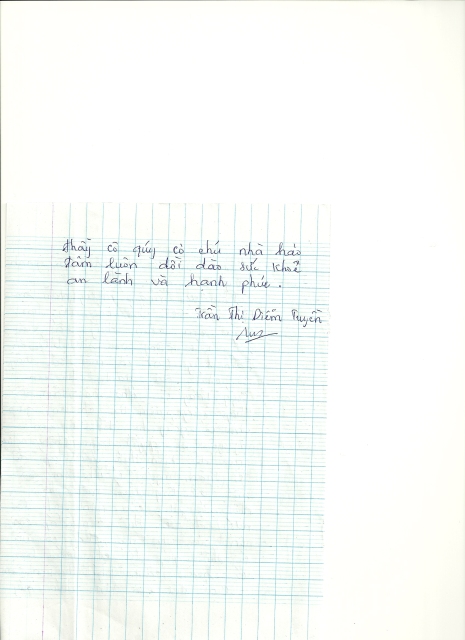 thầy cô quý cô chú nhà hảo
tâm luôn dồi dào sức khoẻ
an lành và hạnh phúc.
Trần Thị Diễm Tuyền